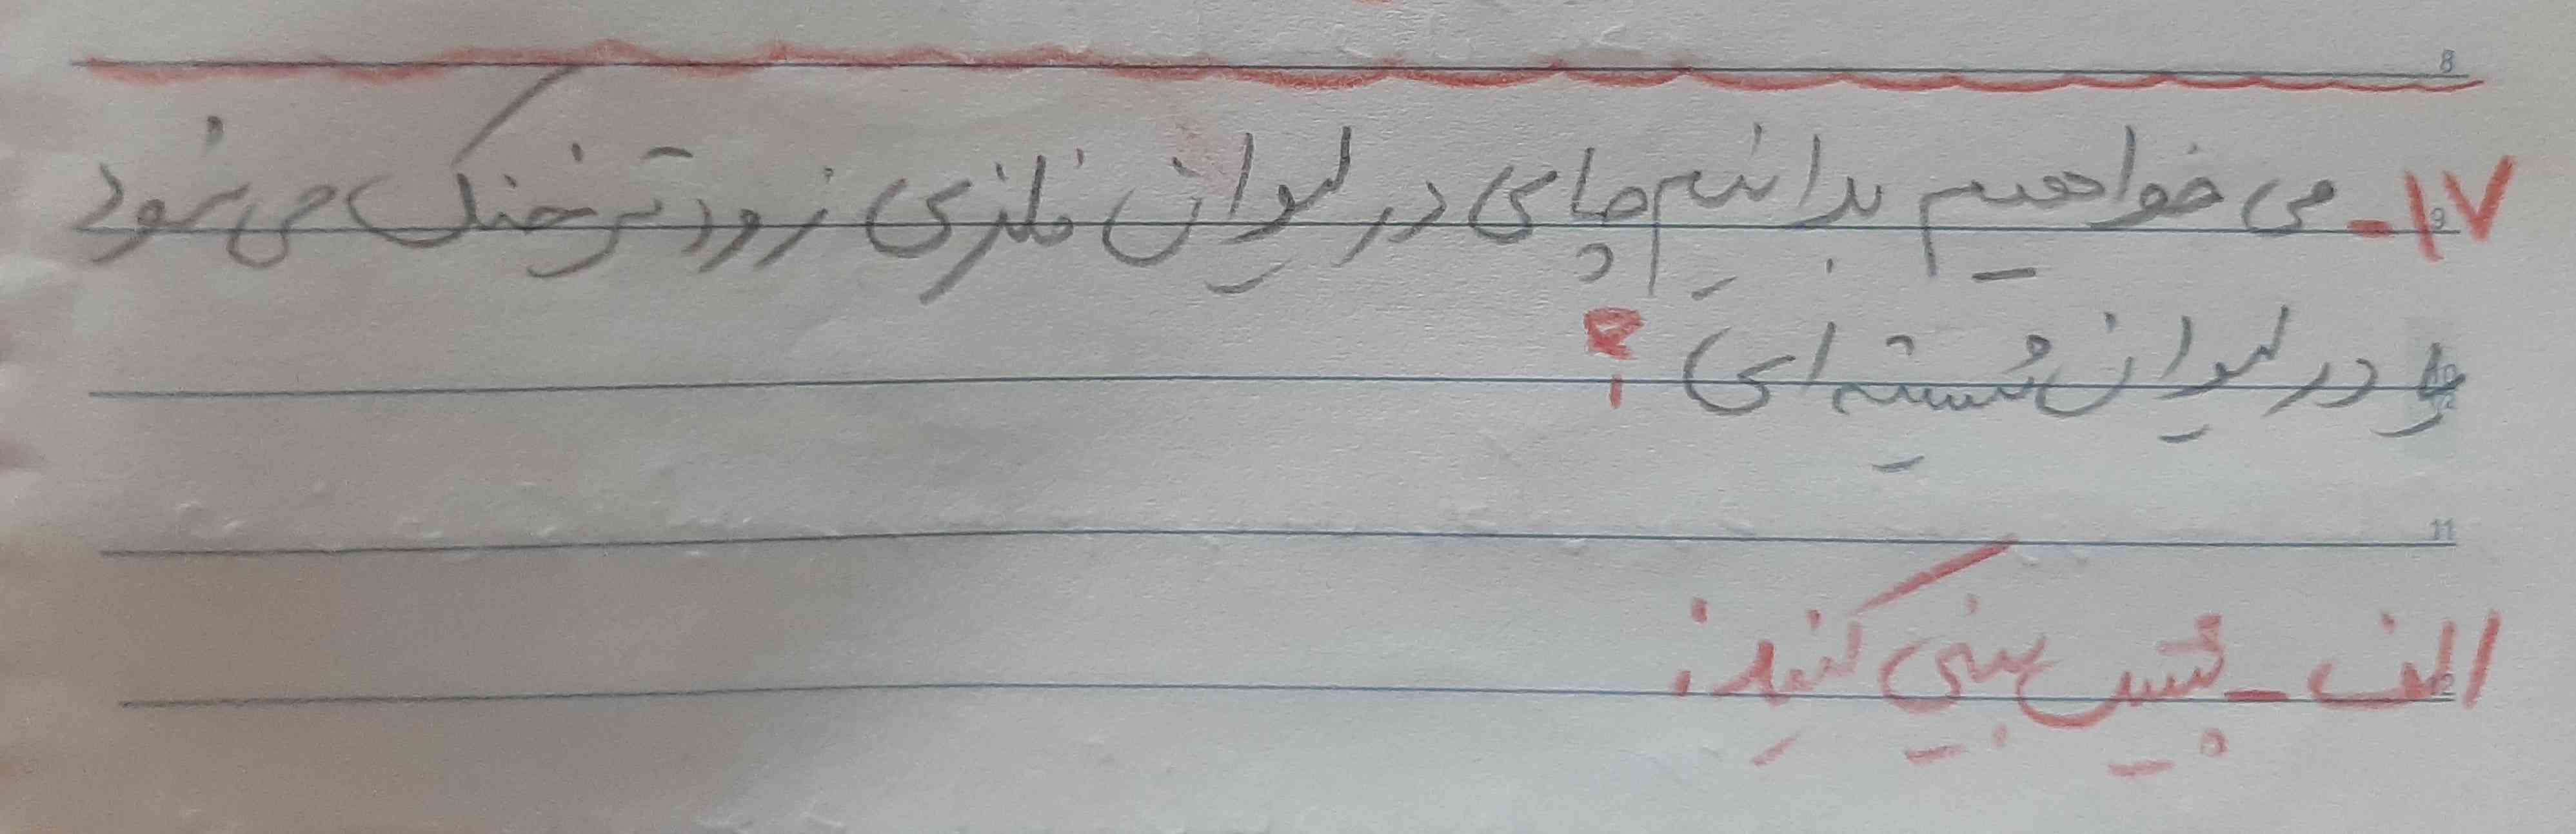 ۱۷- می خواهیم بدانیم چای در لیوان فلزی زودتر خنک می شود
یا در لیوان شیشه ای ؟
الف - پیش بینی کنید: